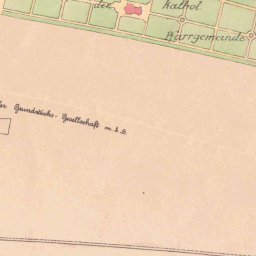 der Kathol.
Pfarrgemeinde
Grundstücks-Gesellschaft m.b.H.